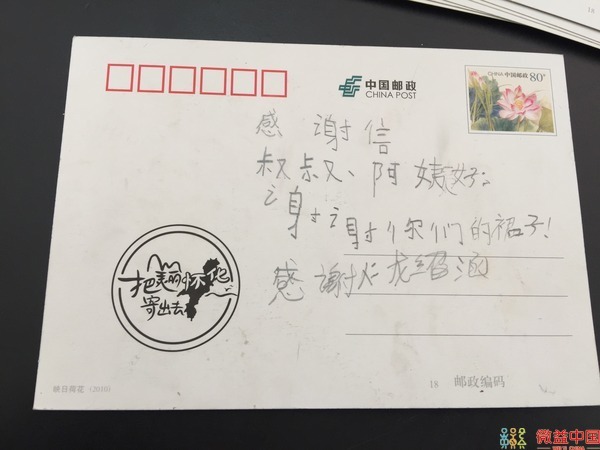 18
中国邮政
CHINA POST
CHINA 中国邮政 80分
感谢信
叔叔、阿姨好：
谢谢你们的裙子！
感谢人龙绍涵
把美丽
寄出去
映日荷花（2010）
18 邮政编码
微益中国